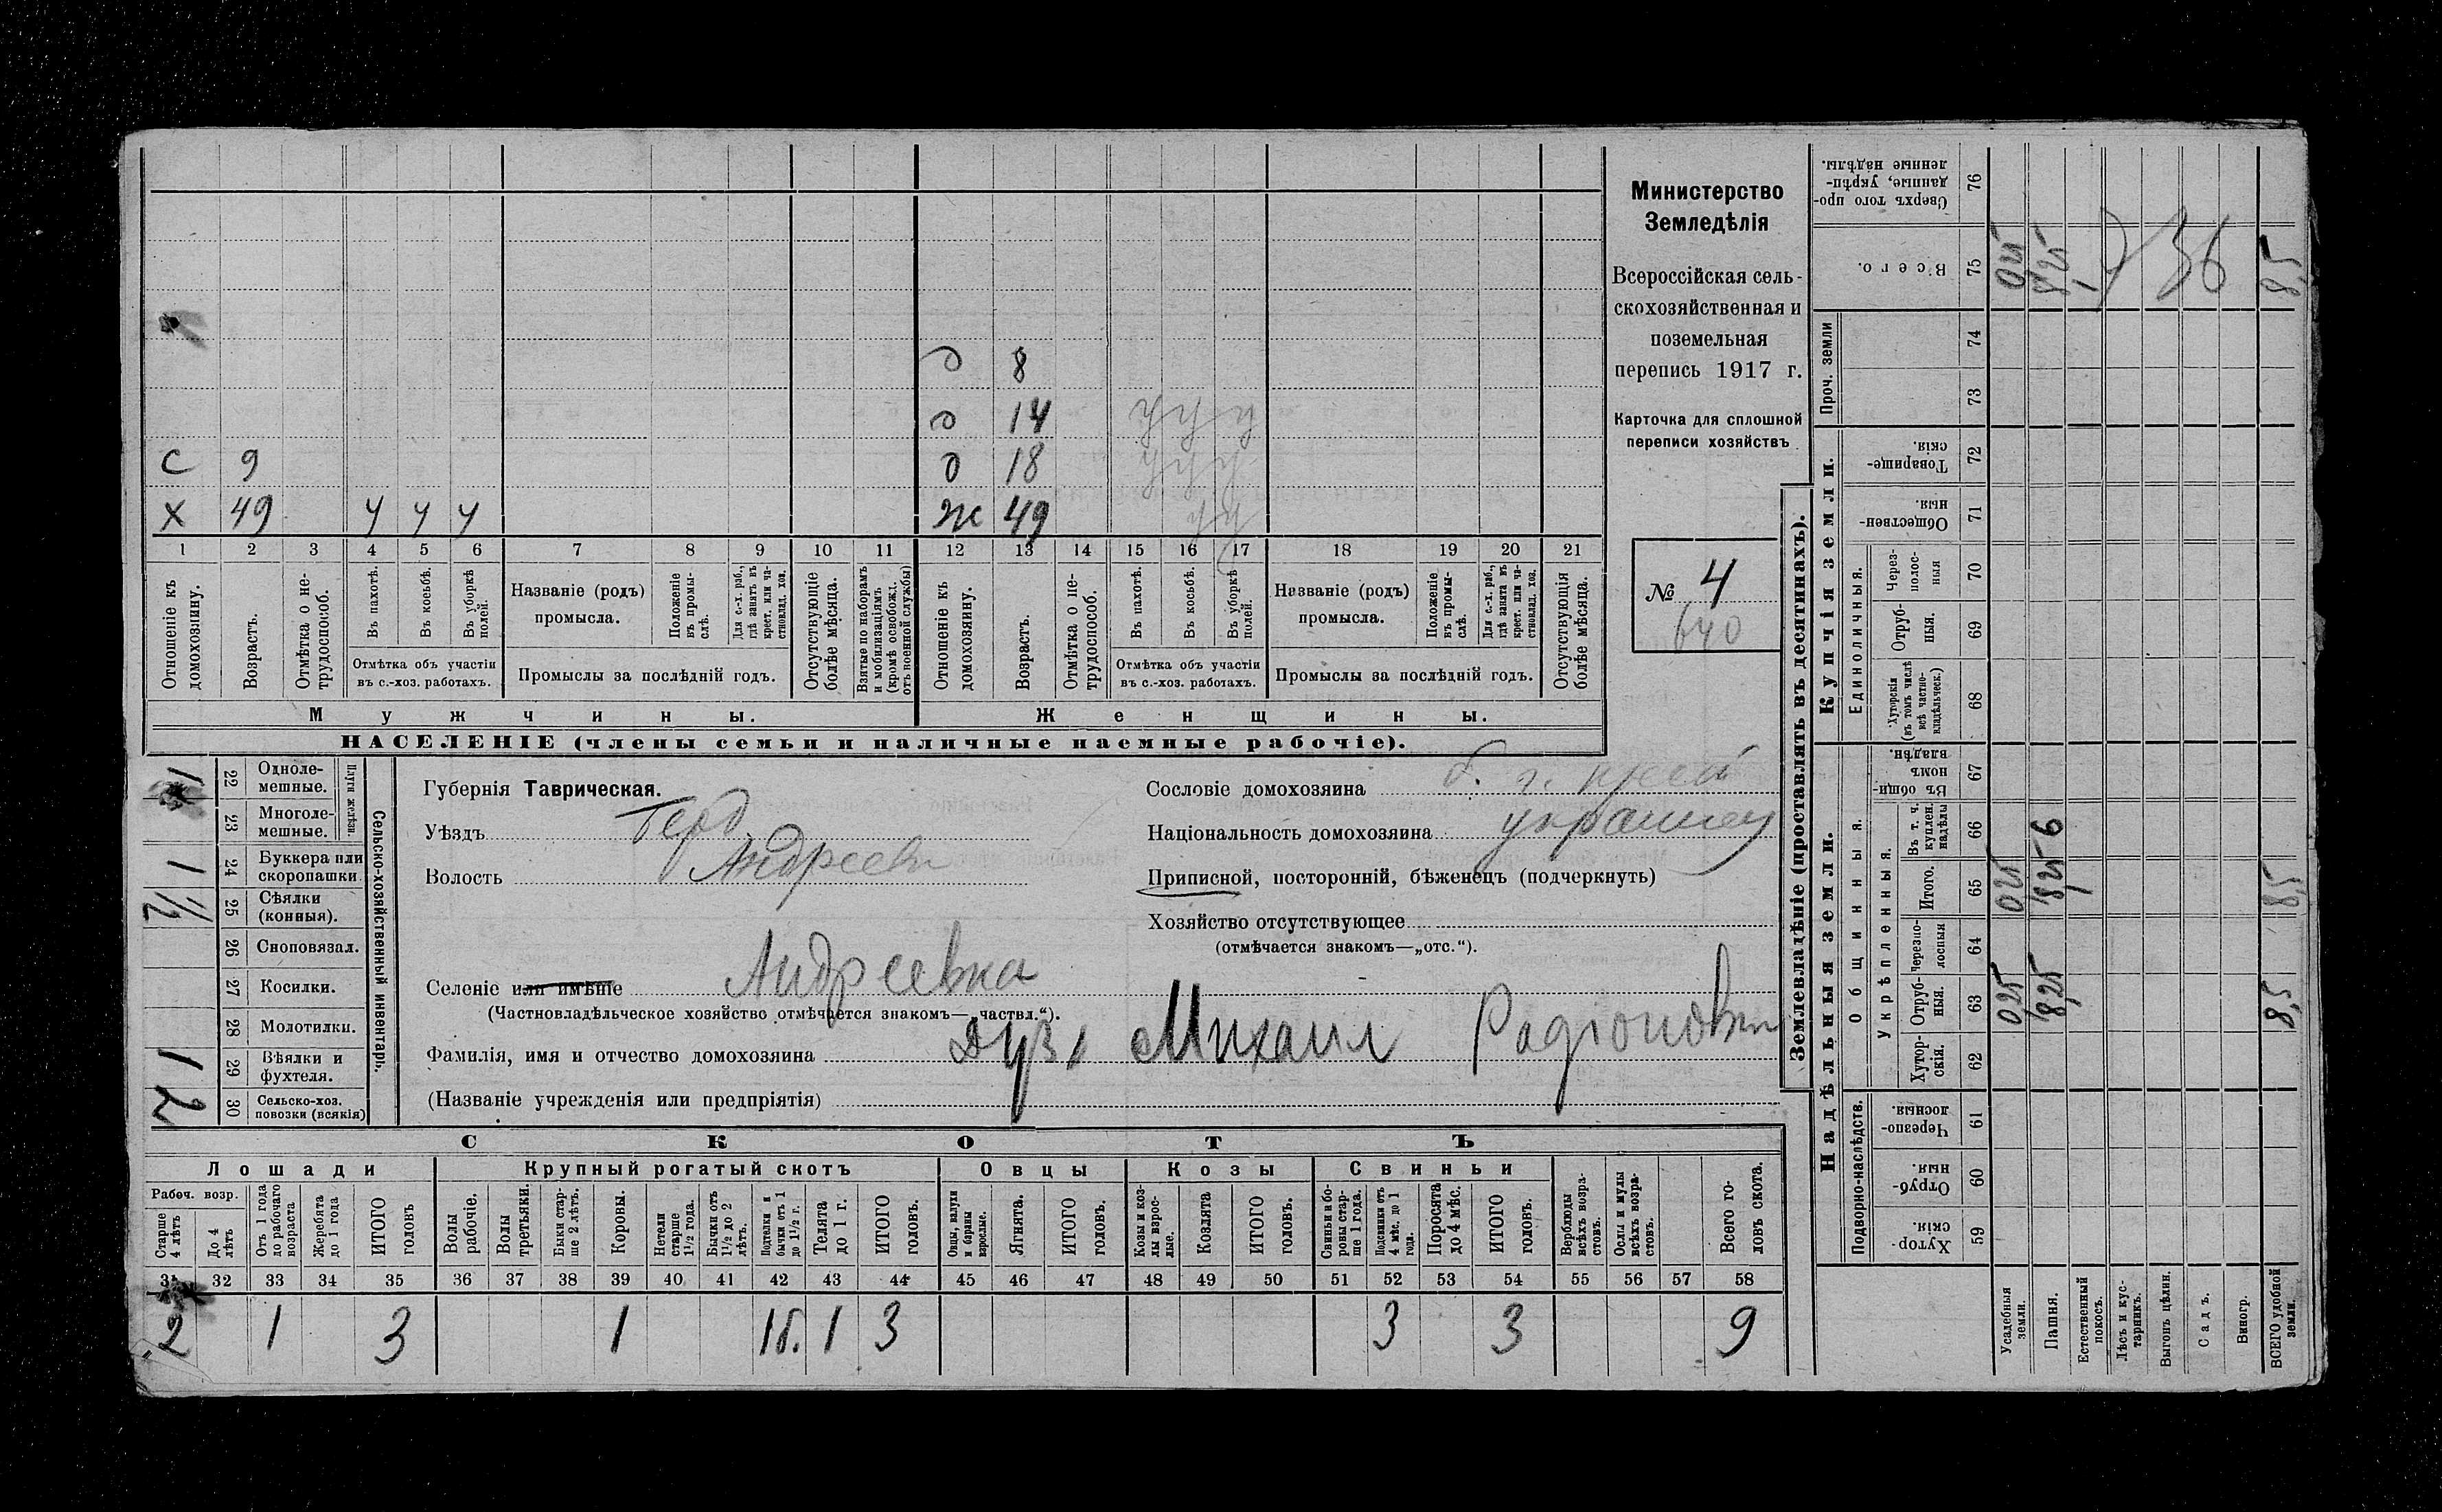 Министерство
Земледѣлія
Всероссійская сель-
скохозяйственная и
поземельная
перепись 1917 г.
Карточка для сплошной
переписи хозяйствъ
№ 4
640
д 8
д 14 у у у
С 9 д 18 у у у
Х 49 у у у Ж 49 у у
1 2 3 4 5 6 7 8 9 10 11 12 13 14 15 16 17 18 19 20 21
Отношеніе къ домохозяину.
Возрастъ.
Отмѣтка о не-трудоспособ.
Въ пахотѣ.
Въ косьбѣ.
Въ уборкѣ полей.
Отмѣтка объ участіи
въ с.-хоз. работахъ.
Названіе (родъ)
промысла.
Положеніе въ промы-слѣ.
Для с.-х. раб., гдѣ занятъ въ крест. или ча-стновлад. хоз.
Промыслы за послѣдній годъ.
Отсутствующіе болѣе мѣсяца.
Взятые по наборамъ и мобилизаціямъ (кромѣ освобожд. отъ военной службы)
Отношеніе къ домохозяину.
Возрастъ.
Отмѣтка о не-трудоспособ.
Въ пахотѣ.
Въ косьбѣ.
Въ уборкѣ полей.
Отмѣтка объ участіи
въ с.-хоз. работахъ.
Названіе (родъ)
промысла.
Положеніе въ промы-слѣ.
Для с.-х. раб., гдѣ занята въ крест. или ча-стновлад. хоз.
Промыслы за послѣдній годъ.
Отсутствующія болѣе мѣсяца.
Мужчины.
Женщины.
НАСЕЛЕНІЕ (члены семьи и наличные наемные рабочіе).
Сельско-хозяйственный инвентарь.
Плуги желѣзн.
1 22 Одноле-мешные.
23 Многоле-мешные.
1 24 Буккера или скоропашки
1/2 25 Сѣялки (конныя).
26 Сноповязал.
27 Косилки.
28 Молотилки.
1 29 Вѣялки и фухтеля.
2 30 Сельско-хоз. повозки (всякія)
Губернія Таврическая.
Уѣздъ Берд
Волость Андреевк
Селеніе или имѣніе Андреевка
(Частновладѣльческое хозяйство отмѣчается знакомъ—„частвл.“).
Фамилія, имя и отчество домохозяина Дузь Михаил Радіонович
(Названіе учрежденія или предпріятія)
Сословіе домохозяина б. г. крест
Національность домохозяина украинец
Приписной, посторонній, бѣженецъ (подчеркнуть)
Хозяйство отсутствующее
(отмѣчается знакомъ—„отс.“).
СКОТЪ
Лошади Крупный рогатый скотъ Овцы Козы Свиньи
Рабоч. возр.
Старше 4 лѣтъ
До 4 лѣтъ
Отъ 1 года до рабочаго возраста
Жеребята до 1 года
ИТОГО головъ
Волы рабочіе.
Волы третьяки.
Быки стар-ше 2 лѣтъ.
Коровы.
Нетели старше 1½ года.
Бычки отъ 1½ до 2 лѣтъ.
Подтелки и бычки отъ 1 до 1½ г.
Телята до 1 г.
ИТОГО головъ.
Овцы, валухи и бараны взрослые.
Ягнята.
ИТОГО головъ.
Козы и коз-лы взрос-лые.
Козлята
ИТОГО головъ.
Свиньи и бо-ровы стар-ше 1 года.
Подсвинки отъ 4 мѣс. до 1 года.
Поросята до 4 мѣс.
ИТОГО головъ.
Верблюды всѣхъ возра-стовъ.
Ослы и мулы всѣхъ возра-стовъ.
Всего го-ловъ скота.
31 32 33 34 35 36 37 38 39 40 41 42 43 44 45 46 47 48 49 50 51 52 53 54 55 56 57 58
2 1 3 1 1б. 1 3 3 3 9
Землевладѣніе (проставлять въ десятинахъ).
Надѣльныя земли.
Купчія земли.
Проч. земли
Подворно-наслѣдств.
Общинныя.
Укрѣпленныя.
Единоличныя.
Хутор-скія. 59
Отруб-ныя. 60
Черезпо-лосныя 61
Хутор-скія. 62
Отруб-ныя. 63
Черезпо-лосныя 64
Итого. 65
Въ т. ч. куплен. надѣлы 66
Въ общи-номъ владѣн. 67
Хуторскія (въ томъ числѣ всѣ частно-владѣльческ.) 68
Отруб-ныя. 69
Через-полос-ныя 70
Обществен-ныя 71
Товарище-скія. 72
73
74
Всего. 75
Сверхъ того про-данные, укрѣп-ленные надѣлы. 76
Усадебныя земли. 0,25 0,25 0,25
Пашня. 8,25 8,25 6 8,25
Естественный покосъ.
Лѣсъ и кус-тарникъ.
Выгонъ цѣлин. 36
Садъ.
Виногр.
ВСЕГО удобной земли. 8,5 8,5 8,5